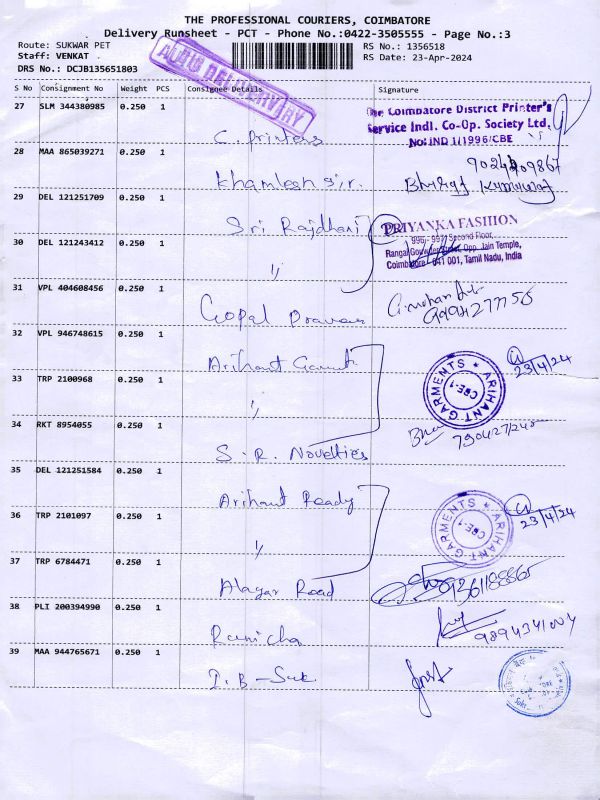 THE PROFESSIONAL COURIERS, COIMBATORE
Delivery Runsheet - PCT - Phone No.:0422-3505555 - Page No.:3
Route: SUKWAR PET
RS No.: 1356518
Staff: VENKAT
RS Date: 23-Apr-2024
DRS No.: DCJB135651803
AUTO DELIVERY
S No Consignment No Weight PCS Consignee Details Signature
27 SLM 344380985 0.250 1 C. Printers
The Coimbatore District Printer's
Service Indl. Co-Op. Society Ltd.
No: IND 1/1996/CBE
28 MAA 865039271 0.250 1 Khamlesh
29 DEL 121251709 0.250 1 Sri Rajdhani
PRIYANKA FASHION
996-997, Second Floor,
Rangai Gowder Street, Opp. Jain Temple,
Coimbatore - 641 001, Tamil Nadu, India
30 DEL 121243412 0.250 1 "
31 VPL 404608456 0.250 1 Gopal
32 VPL 946748615 0.250 1 Arihant
23/4/24
ARIHANT GARMENTS
CBE-1
33 TRP 2100968 0.250 1 "
34 RKT 8954055 0.250 1 S. R. Novelties
35 DEL 121251584 0.250 1 Arihant Ready
23/4/24
ARIHANT GARMENTS
CBE-1
36 TRP 2101097 0.250 1 "
37 TRP 6784471 0.250 1 Alagar Road
38 PLI 200394990 0.250 1
39 MAA 944765671 0.250 1